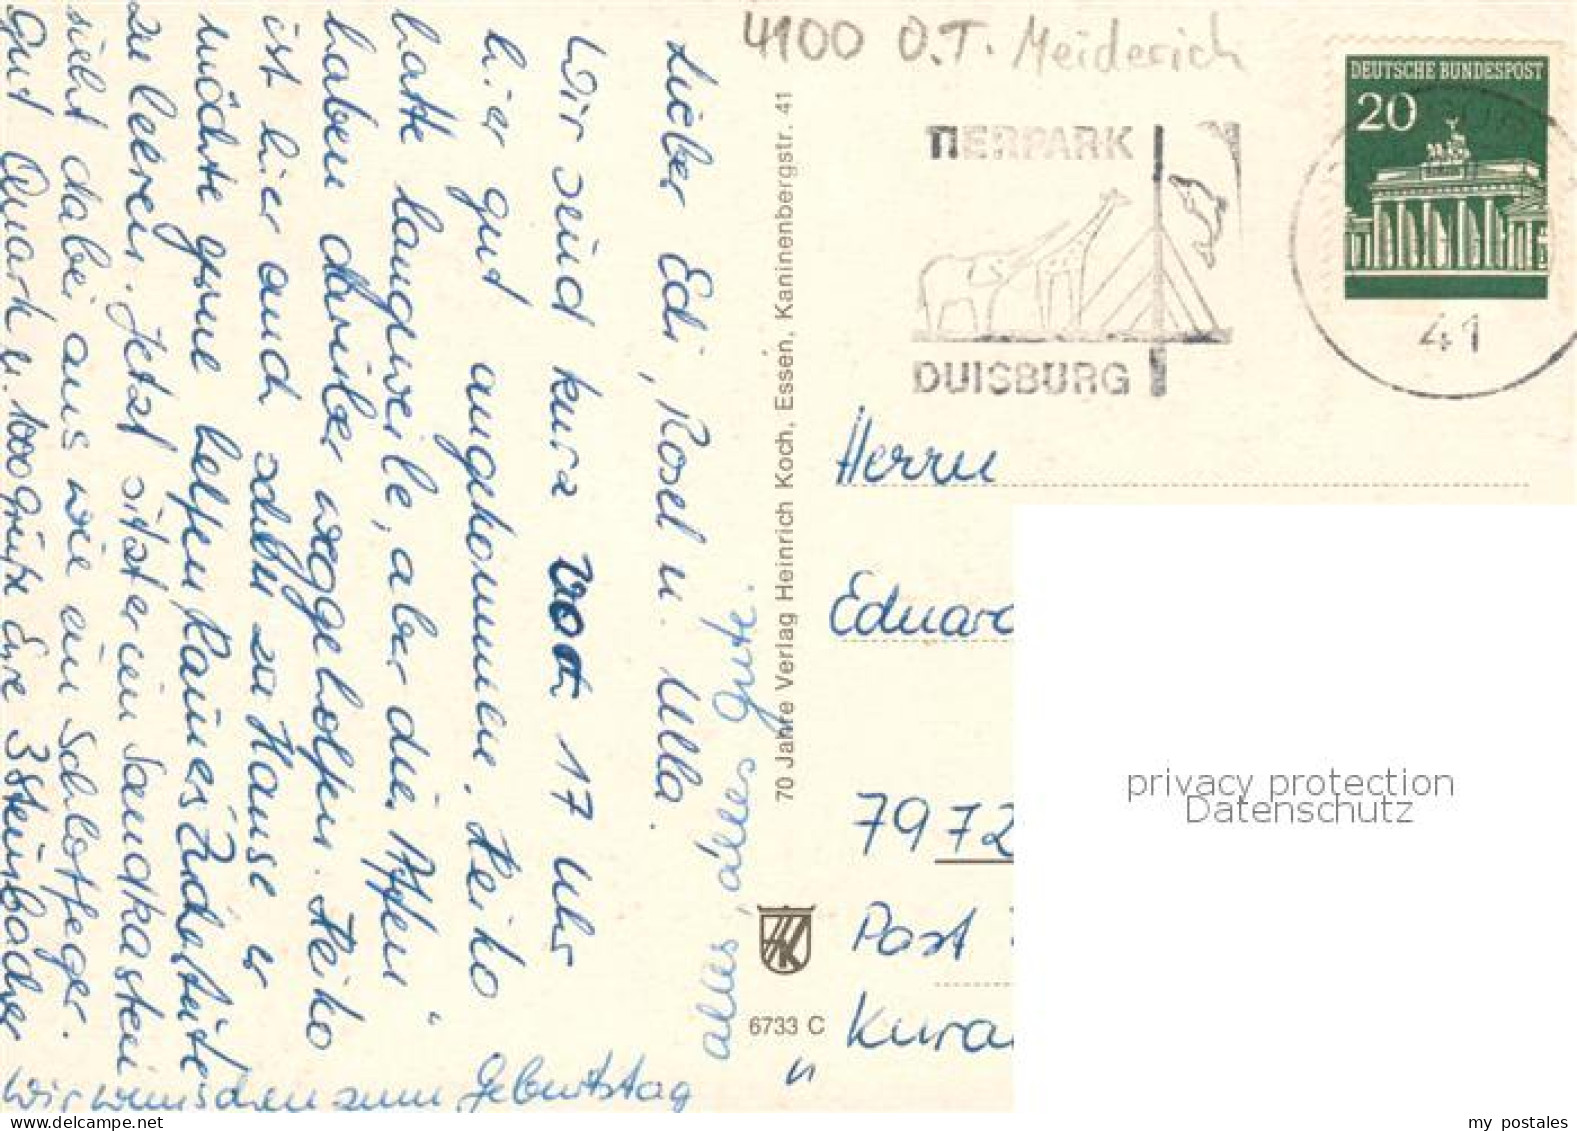 4100 O.T. Meiderich
DEUTSCHE BUNDESPOST
20
TIERPARK
DUISBURG
41
Lieber Edi, Rosel u. Ulla.
Wir sind kurz vor 17 Uhr
hier gut angekommen. Heiko
hatte langweile, aber die "Pfen"
haben darüber weggeholfen. Heiko
ist hier auch schon zu Hause er
möchte gerne helfen
zu leeren. Jetzt sitzt er im Sandkasten
sieht dabei aus wie ein Schlotfeger.
Gut Quark u. 1000 Grüße Eure 3 Steinbacher
Wir wünschen zum Geburtstag
alles, alles, alles Gute.
70 Jahre Verlag Heinrich Koch, Essen, Kaninenbergstr. 41
HK
6733 C
Herrn
Eduard
7972
Post
Kura
privacy protection
Datenschutz
my postales